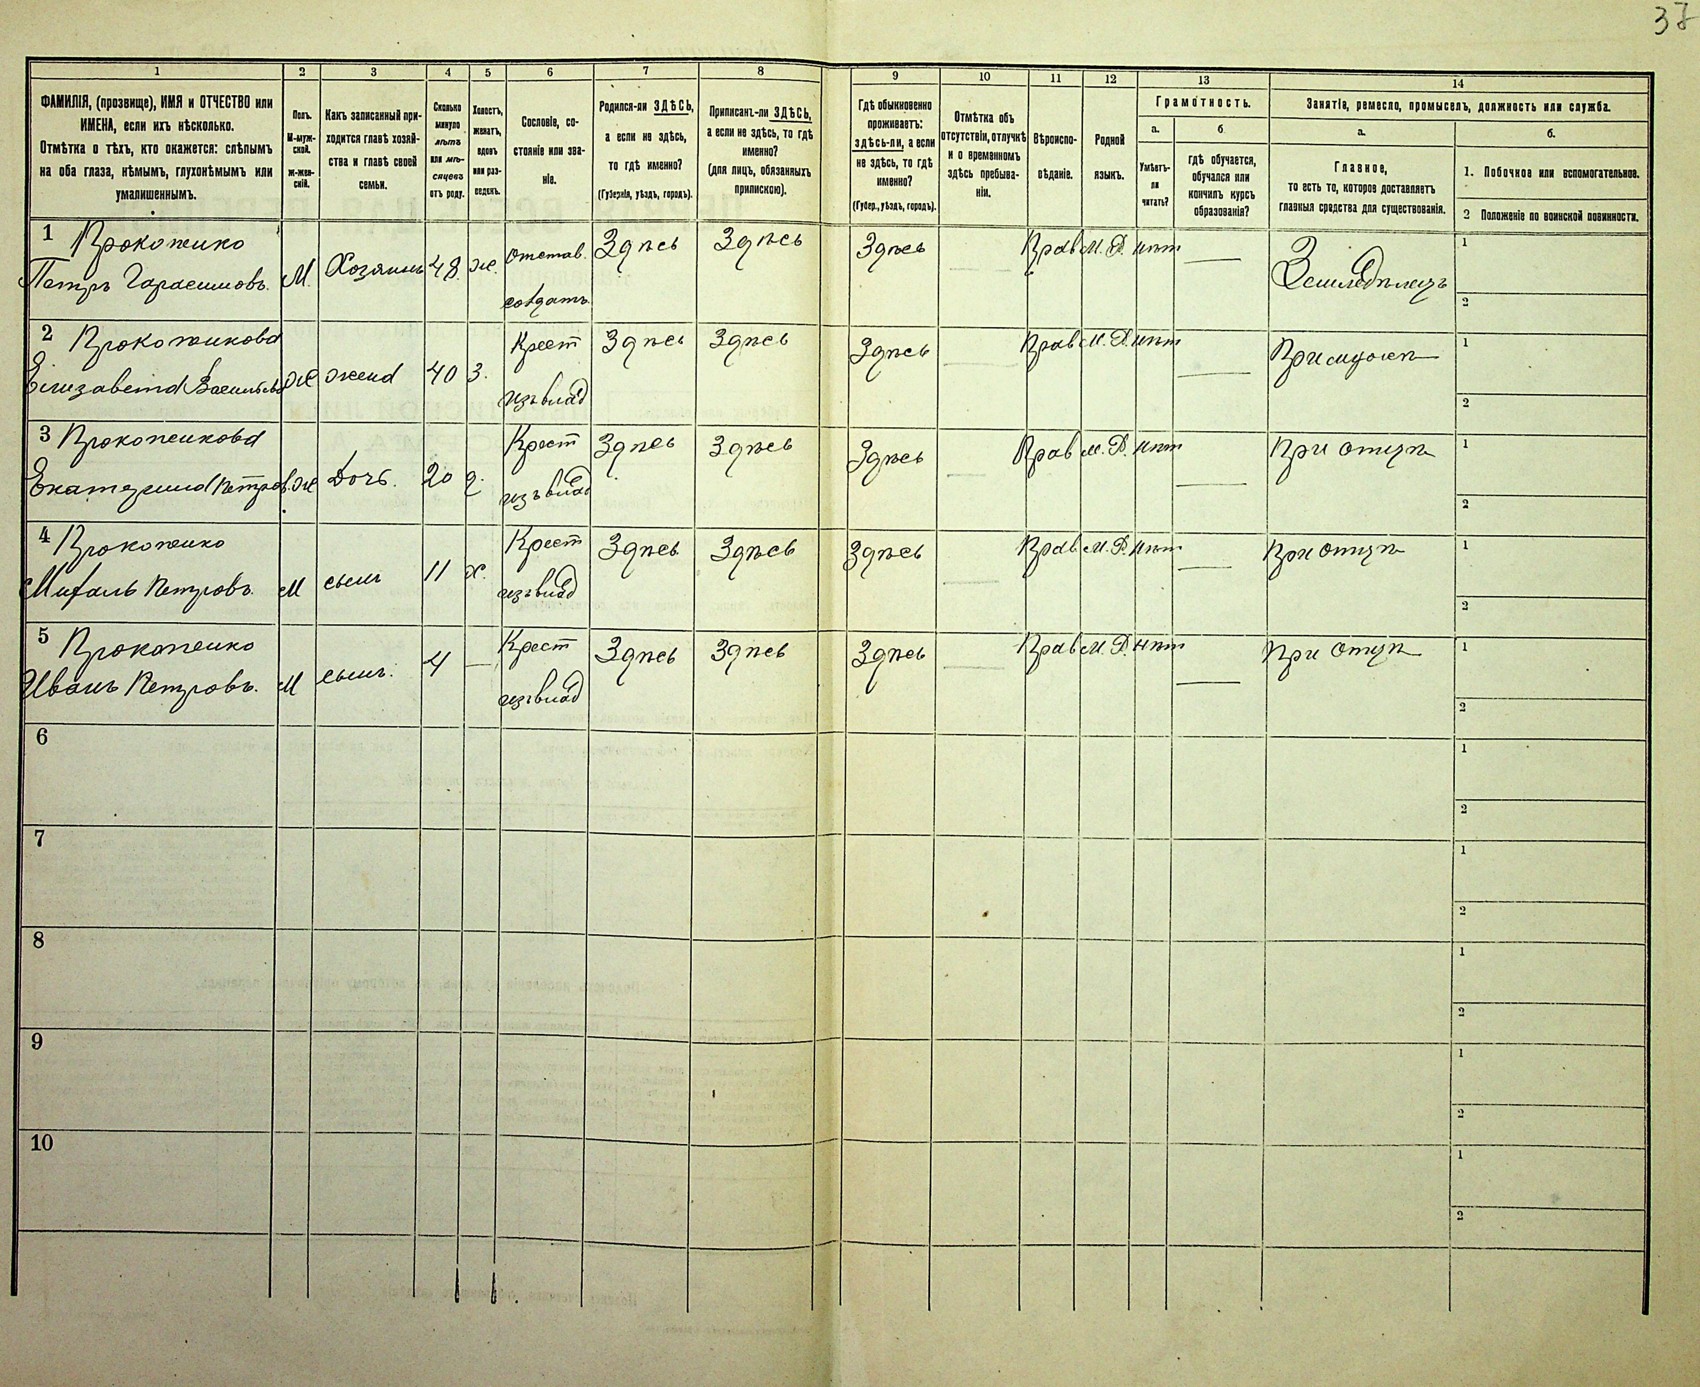 37
1 2 3 4 5 6 7 8 9 10 11 12 13 14
ФАМИЛІЯ, (прозвище), ИМЯ и ОТЧЕСТВО или
ИМЕНА, если ихъ нѣсколько.
Отмѣтка о тѣхъ, кто окажется: слѣпымъ
на оба глаза, нѣмымъ, глухонѣмымъ или
умалишеннымъ.
Полъ.
М-муж-
ской.
ж-жен-
скій.
Какъ записанный при-
ходится главѣ хозяй-
ства и главѣ своей
семьи.
Сколько
минуло
лѣтъ
или мѣ-
сяцевъ
отъ роду.
Холостъ,
женатъ,
вдовъ
или раз-
веденъ.
Сословіе, со-
стояніе или зва-
ніе.
Родился-ли ЗДѢСЬ,
а если не здѣсь,
то гдѣ именно?
(Губернія, уѣздъ, городъ).
Приписанъ-ли ЗДѢСЬ,
а если не здѣсь, то гдѣ
именно?
(для лицъ, обязанныхъ
припискою).
Гдѣ обыкновенно
проживаетъ:
здѣсь-ли, а если
не здѣсь, то гдѣ
именно?
(Губер., уѣздъ, городъ).
Отмѣтка объ
отсутствіи, отлучкѣ
и о временномъ
здѣсь пребыва-
ніи.
Вѣроиспо-
вѣданіе.
Родной
языкъ.
Грамотность.
а.
Умѣетъ-
ли
читать?
б
гдѣ обучается,
обучался или
кончилъ курсъ
образованія?
Занятія, ремесло, промыселъ, должность или служба.
а.
Главное,
то есть то, которое доставляетъ
главныя средства для существованія.
б.
1. Побочное или вспомогательное.
2 Положеніе по воинской повинности.
1 Прокопенко Отстав. Здѣсь Здѣсь Здѣсь Прав М. Р. нѣт 1
Петръ Гарасимовъ. М. Хозяинъ 48. ж. солдатъ Земледѣлецъ 2
2 Прокопенкова Крест Здѣсь Здѣсь Здѣсь Прав М. Р. нѣт При мужѣ 1
Елизавета Васильева ж жена 40 з. изъ влад 2
3 Прокопенкова Крест Здѣсь Здѣсь Здѣсь Прав М. Р. нѣт При отцѣ 1
Екатерина Петров. ж дочь. 20 д. изъ влад 2
4 Прокопенко Крест Здѣсь Здѣсь Здѣсь Прав М. Р. нѣт При отцѣ 1
Петровъ. М сынъ 11 х. изъ влад 2
5 Прокопенко Крест Здѣсь Здѣсь Здѣсь Прав М. Р. нѣт При отцѣ 1
Иванъ Петровъ. М сынъ. 4 изъ влад 2
6 1
2
7 1
2
8 1
2
9 1
2
10 1
2